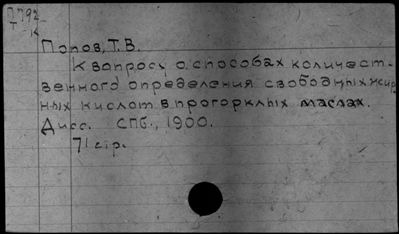 Попов, Т. В.
К вопросу о способах количест-
венного определения свободных жир
ных кислот в прогорклых маслах.
Дисс. СПб., 1900.
71 стр.